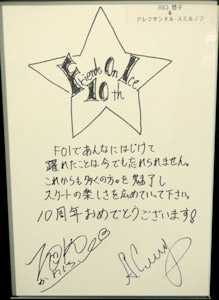 川口 悠子
&
アレクサンドル・スミルノフ
Friends On Ice
10th
FOIであんなにはじけて
踊れたことは今でも忘れられません。
これからも多くの方々を魅了し
スケートの楽しさを広めていって下さい。
10周年おめでとうございます!